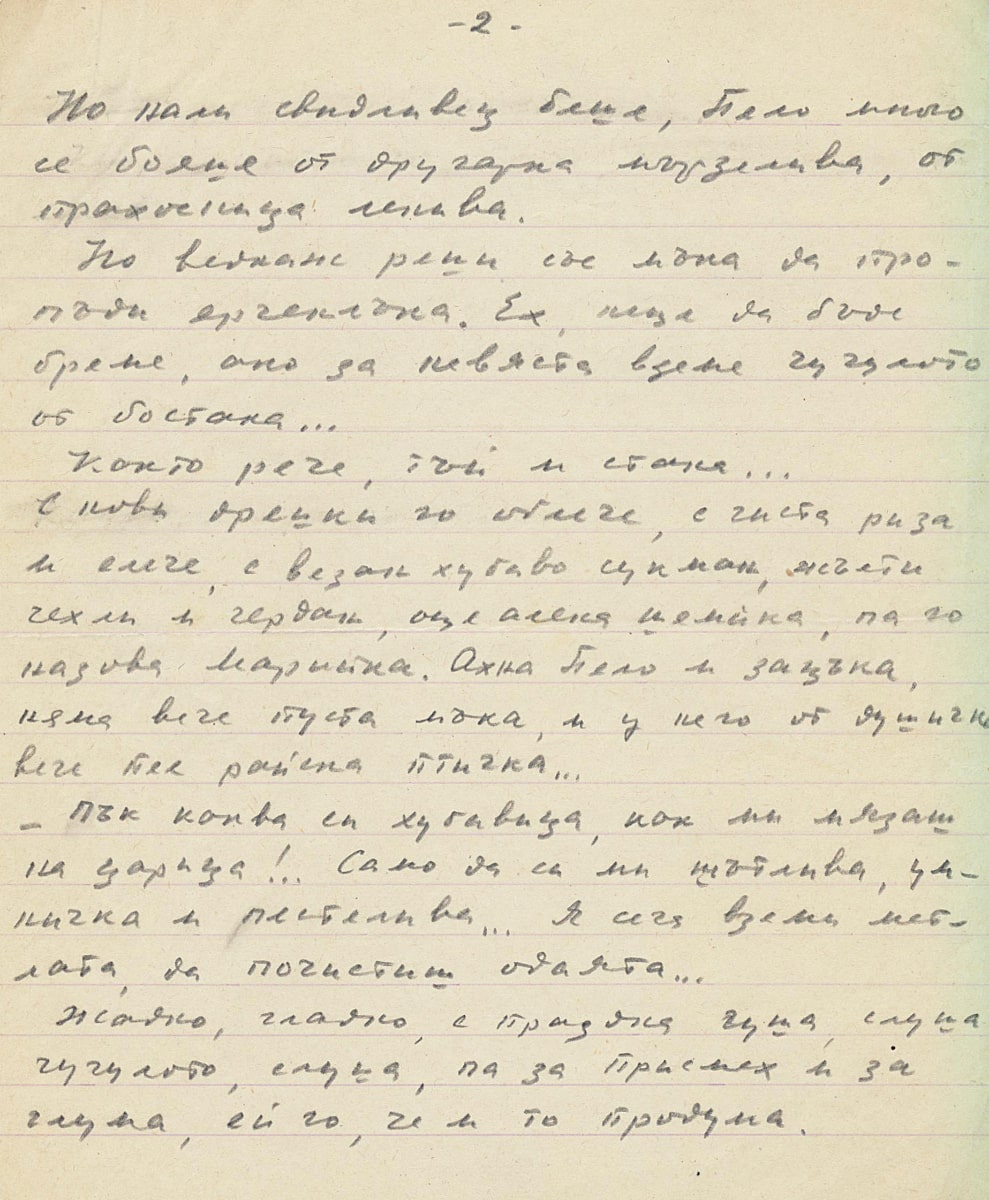 -2-
Но нали свидливец беше, Пело много
се бояше от другарка мързелива, от
прахосница ленива.
Но веднаж реши със мъка да про-
пъди ергенлъка. Ех, нещо да бъде
бреме, ако за невяста вземе чучулото
от бостана...
Както рече, тъй и стана...
С нови дрешки го облече, с чиста риза
и елече, с везан хубаво сукман, жълти
чехли и гердан, още алена шемийка, па го
назова Марийка. Ахна Пело и зацъка,
няма вече пуста мъка, и у него от душичка
вече пее райска птичка...
- Пък каква си хубавица, как ми мязаш
на царица!.. Само да си ми шътлива, ум-
ничка и пестелива... Я сега вземи мет-
лата, да почистиш одаята...
Жадно, гладно, с праздна гуша, слуша
чучулото, слуша, па за присмех и за
глума, ей го, че и то продума.